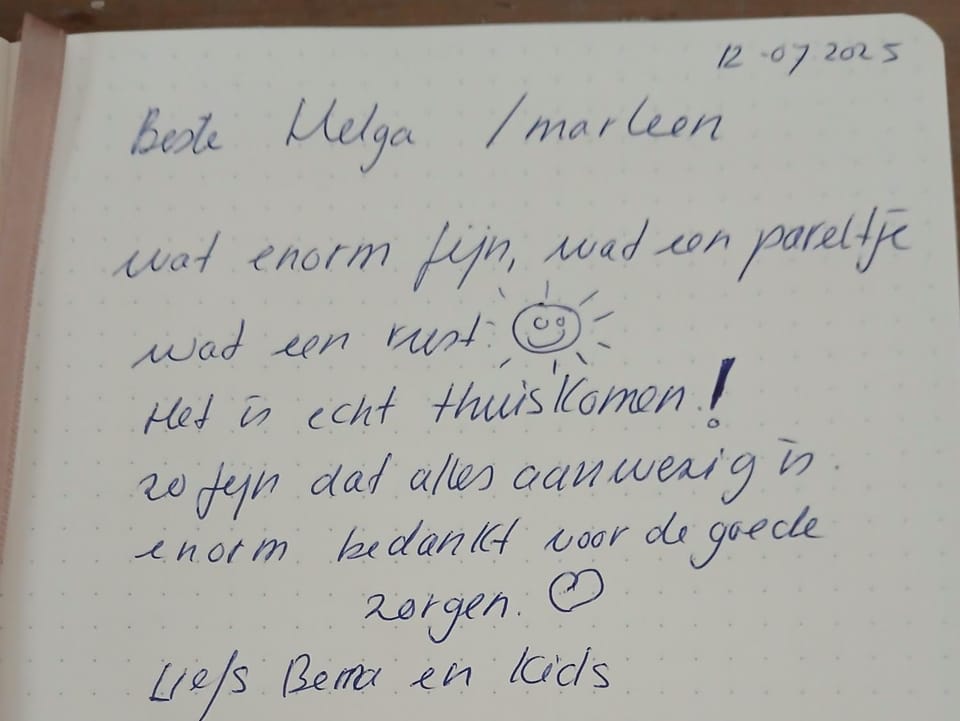 12-07 2025
Beste Helga / marleen
wat enorm fijn, wat een pareltje
wat een rust.
Het is echt thuiskomen!
zo fijn dat alles aanwezig is.
enorm bedankt voor de goede
zorgen.
Liefs en Kids